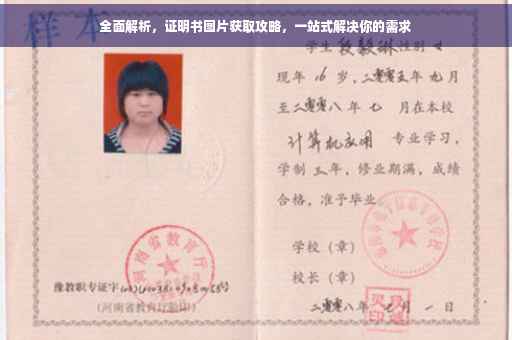 全面解析，证明书图片获取攻略，一站式解决你的需求
样本
学生 段毅琳 性别 女
现年 16 岁，二零零五年 九月
至二零零八年 七 月在本校
计算机应用 专业学习，
学制 三 年，修业期满，成绩
合格，准予毕业。
学校（章）
校长（章）
二零零八年 七 月 一 日
河南省教育厅
豫教职专证字
（河南省教育厅验印）